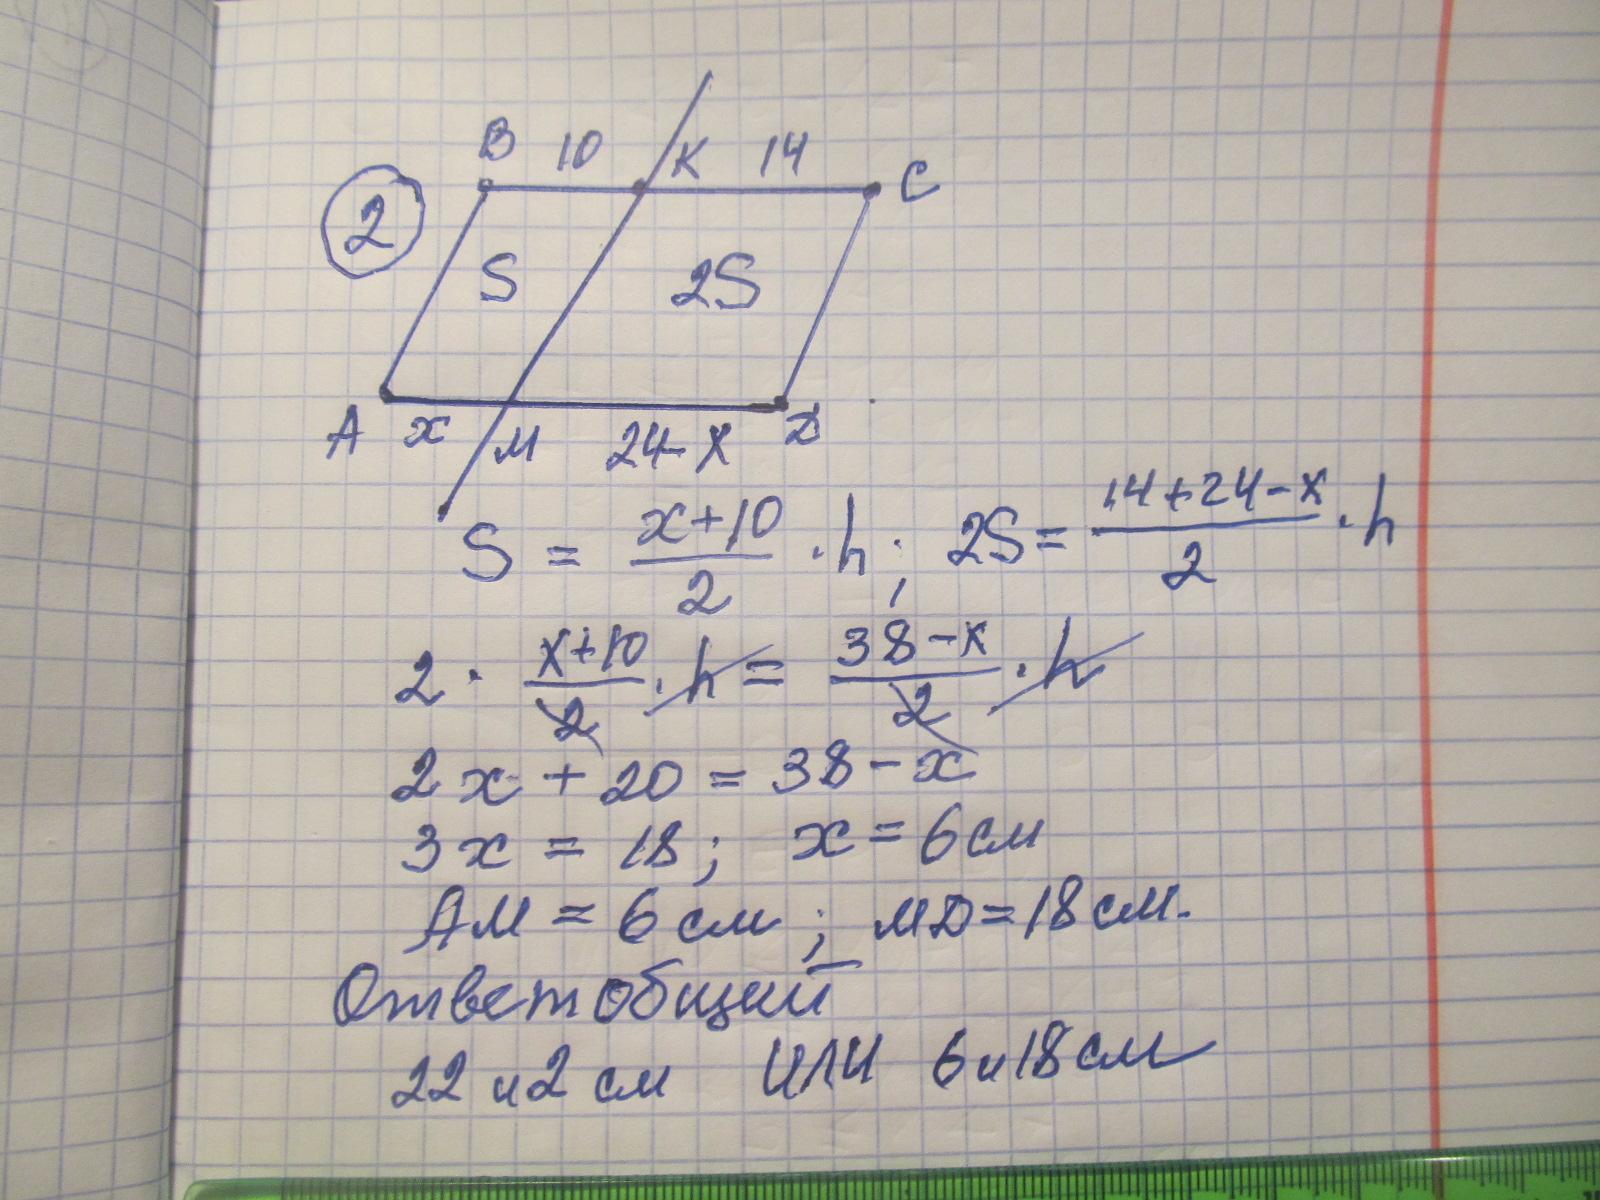 B 10 K 14 C
2
S 2S
A x M 24-x D
S = (x+10)/2 · h; 2S = (14+24-x)/2 · h
2 · (x+10)/2 · h = (38-x)/2 · h
2x + 20 = 38 - x
3x = 18; x = 6 см
AM = 6 см; MD = 18 см.
Ответ общий
22 и 2 см ИЛИ 6 и 18 см